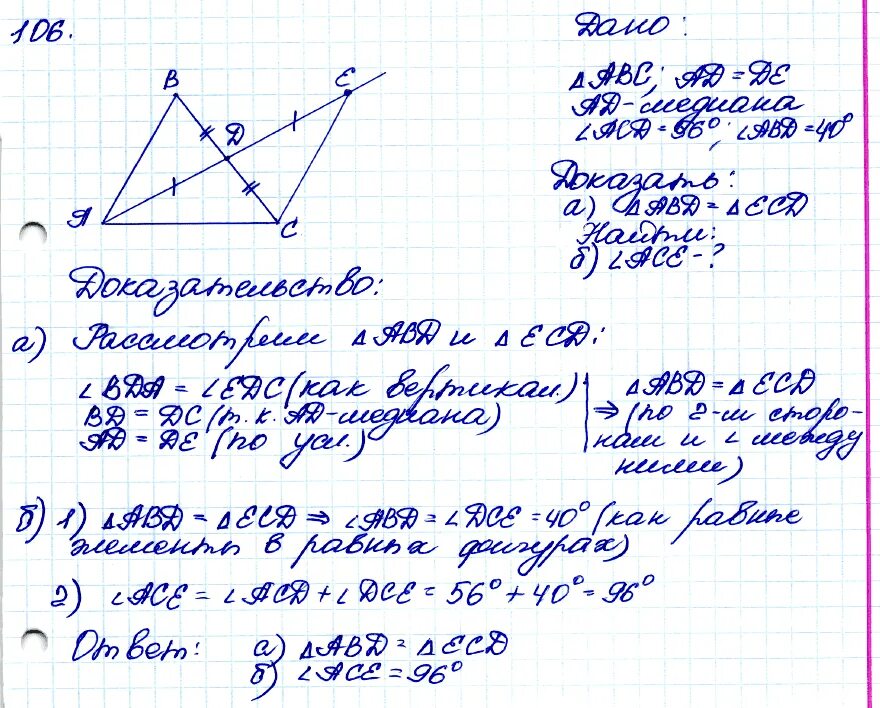 106.
Дано:
△ABC; AD = DE
AD - медиана
∠ACD = 56°; ∠ABD = 40°
Доказать:
а) △ABD = △ECD
Найти:
б) ∠ACE - ?
B
E
D
A
C
Доказательство:
а) Рассмотрим △ABD и △ECD:
∠BDA = ∠EDC (как вертикал.)
BD = DC (т.к. AD - медиана)
AD = DE (по усл.)
△ABD = △ECD
⇒ (по 2-м сторо-
нам и ∠ между
ними)
б) 1) △ABD = △ECD ⇒ ∠ABD = ∠DCE = 40° (как равные
элементы в равных фигурах)
2) ∠ACE = ∠ACD + ∠DCE = 56° + 40° = 96°
Ответ: а) △ABD = △ECD
б) ∠ACE = 96°